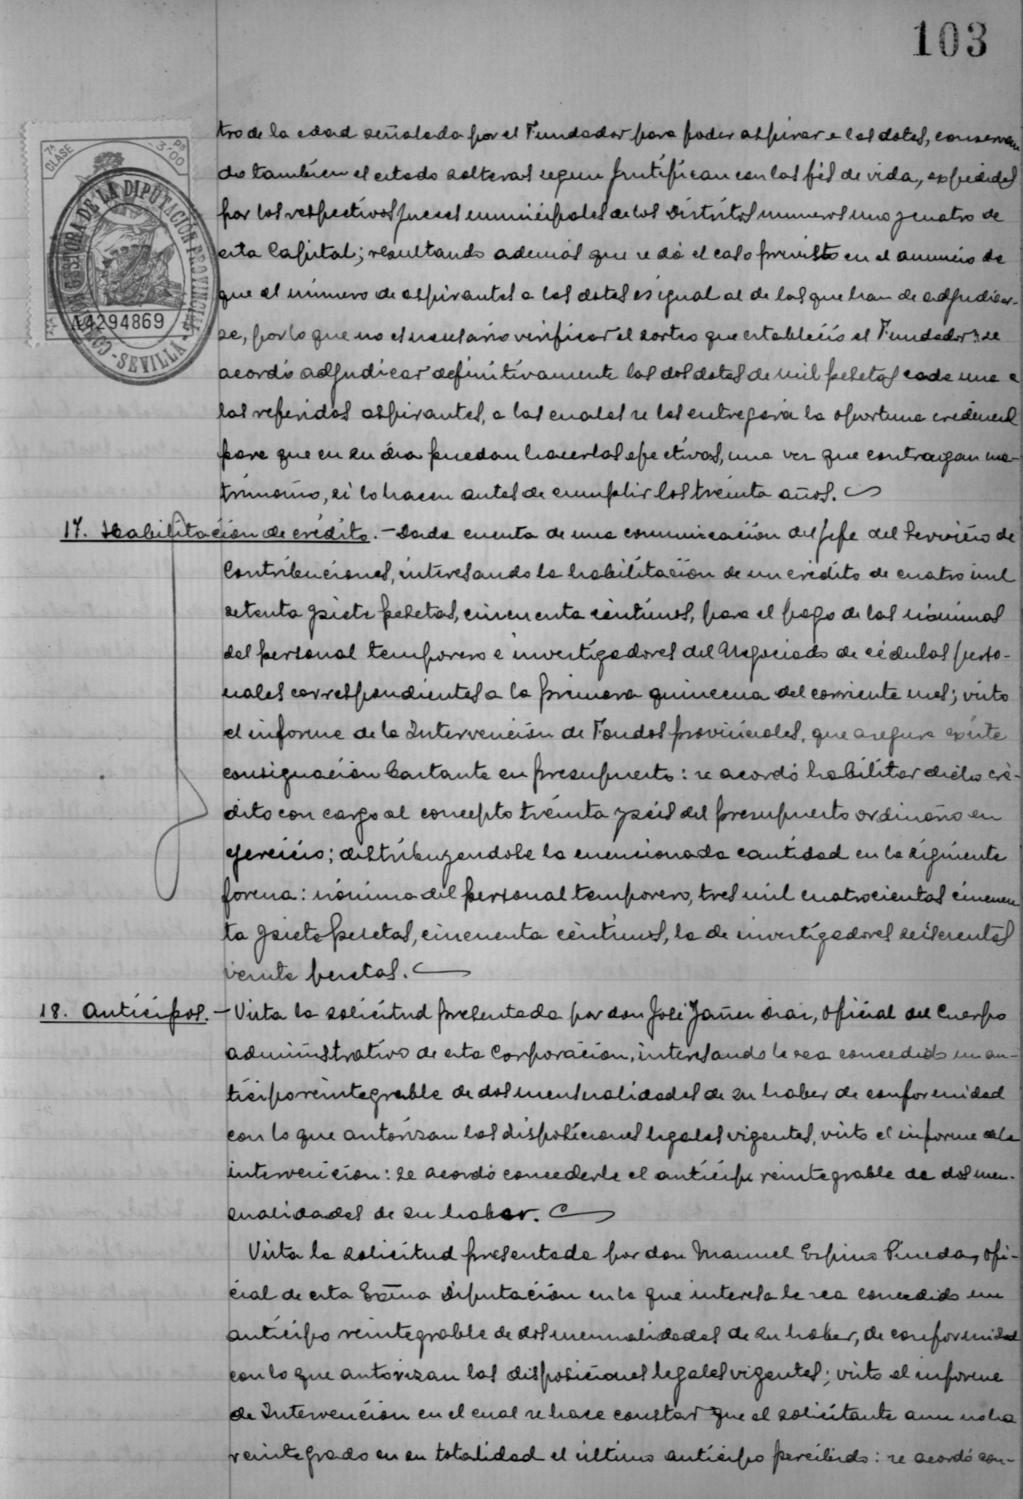 103
7ª CLASE
3'00 Ps
COMISIÓN GESTORA DE LA DIPUTACIÓN PROVINCIAL - SEVILLA -
A4294869
tro de la edad señalada por el Fundador para poder aspirar a las dotes, conservan
do tambien el estado solteras segun justifican con las fés de vida, expedidas
por los respectivos jueces municipales de los Distritos numeros uno y cuatro de
esta Capital; resultando además que se dá el caso previsto en el anuncio de
que el número de aspirantes a las dotes es igual al de las que han de adjudicar-
se, por lo que no es necesario verificar el sorteo que estableció el Fundador: se
acordó adjudicar definitivamente las dos dotes de mil pesetas cada una a
las referidas aspirantes, a las cuales se les entregará la oportuna credencial
para que en su dia puedan hacerlas efectivas, una vez que contraigan ma-
trimonio, si lo hacen antes de cumplir los treinta años.
17. Habilitación de crédito. - Dada cuenta de una comunicación del Jefe del Servicio de
Contribuciones, interesando la habilitación de un crédito de cuatro mil
setenta y siete pesetas, cincuenta céntimos, para el pago de las nóminas
del personal temporero e investigadores del Negociado de cédulas perso-
nales correspondientes a la primera quincena del corriente mes; visto
el informe de la Intervención de Fondos provinciales, que asegura existe
consignación bastante en presupuesto: se acordó habilitar dicho cré-
dito con cargo al concepto treinta y seis del presupuesto ordinario en
ejercicio; distribuyendose la mencionada cantidad en la siguiente
forma: nómina del personal temporero, tres mil cuatrocientas cincuen
ta y siete pesetas, cincuenta céntimos, la de investigadores seiscientas
veinte pesetas.
18. Anticipos. - Vista la solicitud presentada por don José Jañez Diaz, Oficial del Cuerpo
administrativo de esta Corporación, interesando le sea concedido un an-
ticipo reintegrable de dos mensualidades de su haber de conformidad
con lo que autorizan las disposiciones legales vigentes, visto el informe de la
intervención: se acordó concederle el anticipo reintegrable de dos men-
sualidades de su haber.
Vista la solicitud presentada por don Manuel Espino Pineda, Ofi-
cial de esta Exma Diputación en la que interesa le sea concedido un
anticipo reintegrable de dos mensualidades de su haber, de conformidad
con lo que autorizan las disposiciones legales vigentes; visto el informe
de Intervención en el cual se hace constar que el solicitante aun no ha
reintegrado en su totalidad el último anticipo percibido: se acordó con-